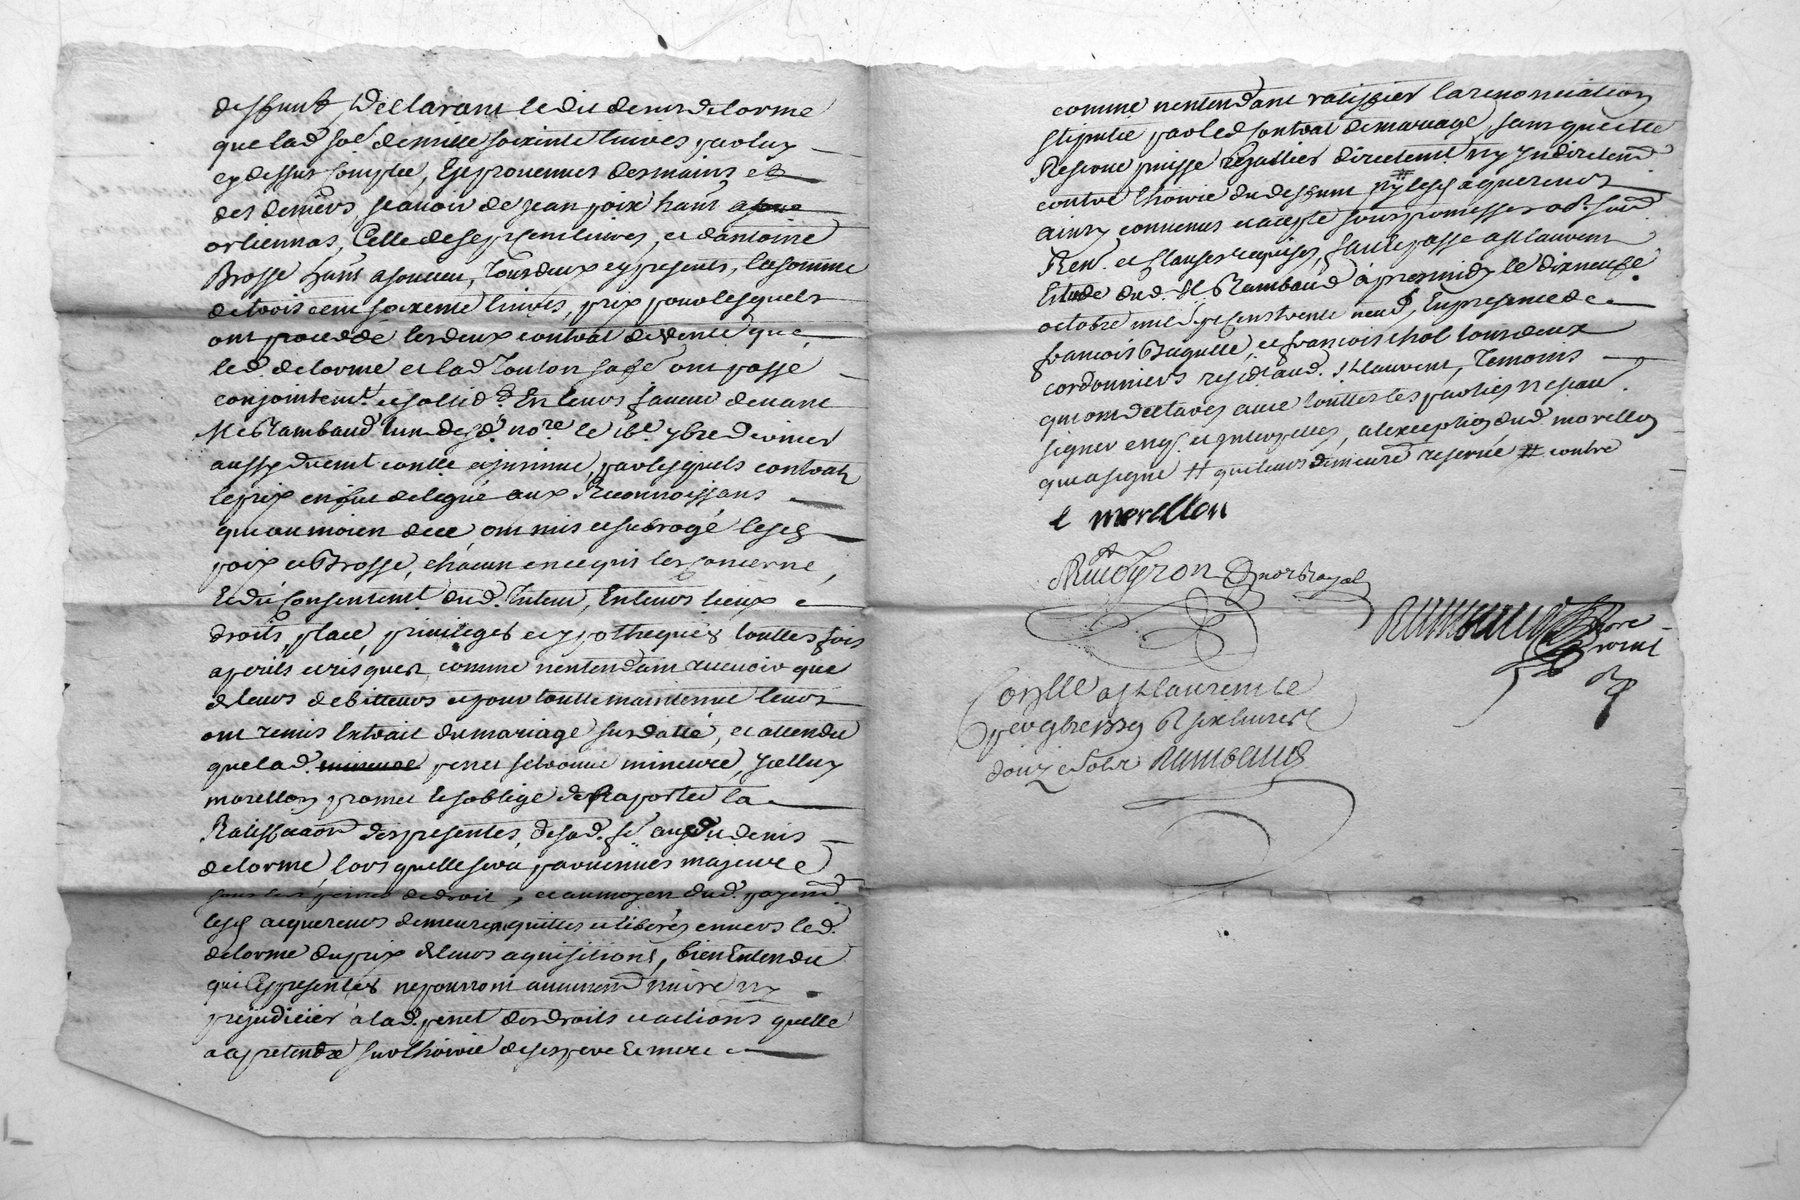 deffunt, Declarant ledit denis delorme
que lad. soe. de mille soixante livres par luy
cy dessus comptée, Est provenue des mains et
des deniers scavoir de jean poix hant a
orliennas, Celle de sept cent livres, et dantoine
Brosse hant a soucieu, tous deux cy presents, la somme
de trois cent soixente livres, prix pour lesquels
ont procedé les deux contrat de vente que
led. delorme et lad. touton sa fe. ont passé
conjointemt. et solid. En leurs faveur devant
Me Rambaud lun desd. nore. le 16e. xbre dernier
aussy duemt. conllé et insinué, par lesquels contrats
le prix en fut delegué aux Reconnoissans
qui au moien de ce, ont mis et subrogé lesd.
poix et Brosse, chacun en ce qui les concerne,
Et du Consentemt. dud. tuteur, En leurs lieux
droits, place, privileges et ypotheques touttes fois
a perils et risques comme nentendant recevoir que
de leurs debitteurs et pour toutte maintenue leurs
ont remis Extrait du mariage susdatté, et attendu
que lad. mineure penet se trouve mineure, Icelluy
morellon promet et soblige de Raporter la
Ratiffication des presentes, de sad. fe. aud. denis
delorme, lors quelle sera parvenues majeure
de droit, et au moyen dud. payemt.
lesd. acquereurs demeurent quittes et liberés envers led.
delorme du prix de leurs aquisitions, bien Entendu
que les presentes ne pourront aucunemt. nuire ny
prejudicier à lad. penet des droits et actions quelle
a a pretendre sur lhoirie de ses pere Et mere
comme nentendant ratiffier la renonciation
stipulée par led. contrat de mariage, sans que cette
Reserve puisse rejallier directemt. ny Indirectemt.
contre lhoirie du deffunt # ny lesd. aquereurs
ainsy convenus et accepté sous promesses obn. soumn.
Ren. et Clauses requises, fait et passé a st laurent
Etude dud. Me Rambaud a presmidy le dixneufe.
octobre mil sept cens trente neuf, En presence de
francois Buguette, et francois chol tous deux
cordonniers residand. st laurent, Temoins
qui ont declarés avec touttes les parties ne scavr.
signer enqs. et Interpellés, a lexception dud. morellon
qui a signé # qui leurs demeure reservée # contre
e morellon
Rambaud
nore
royal
Conllé a st laurent le
Rambaud